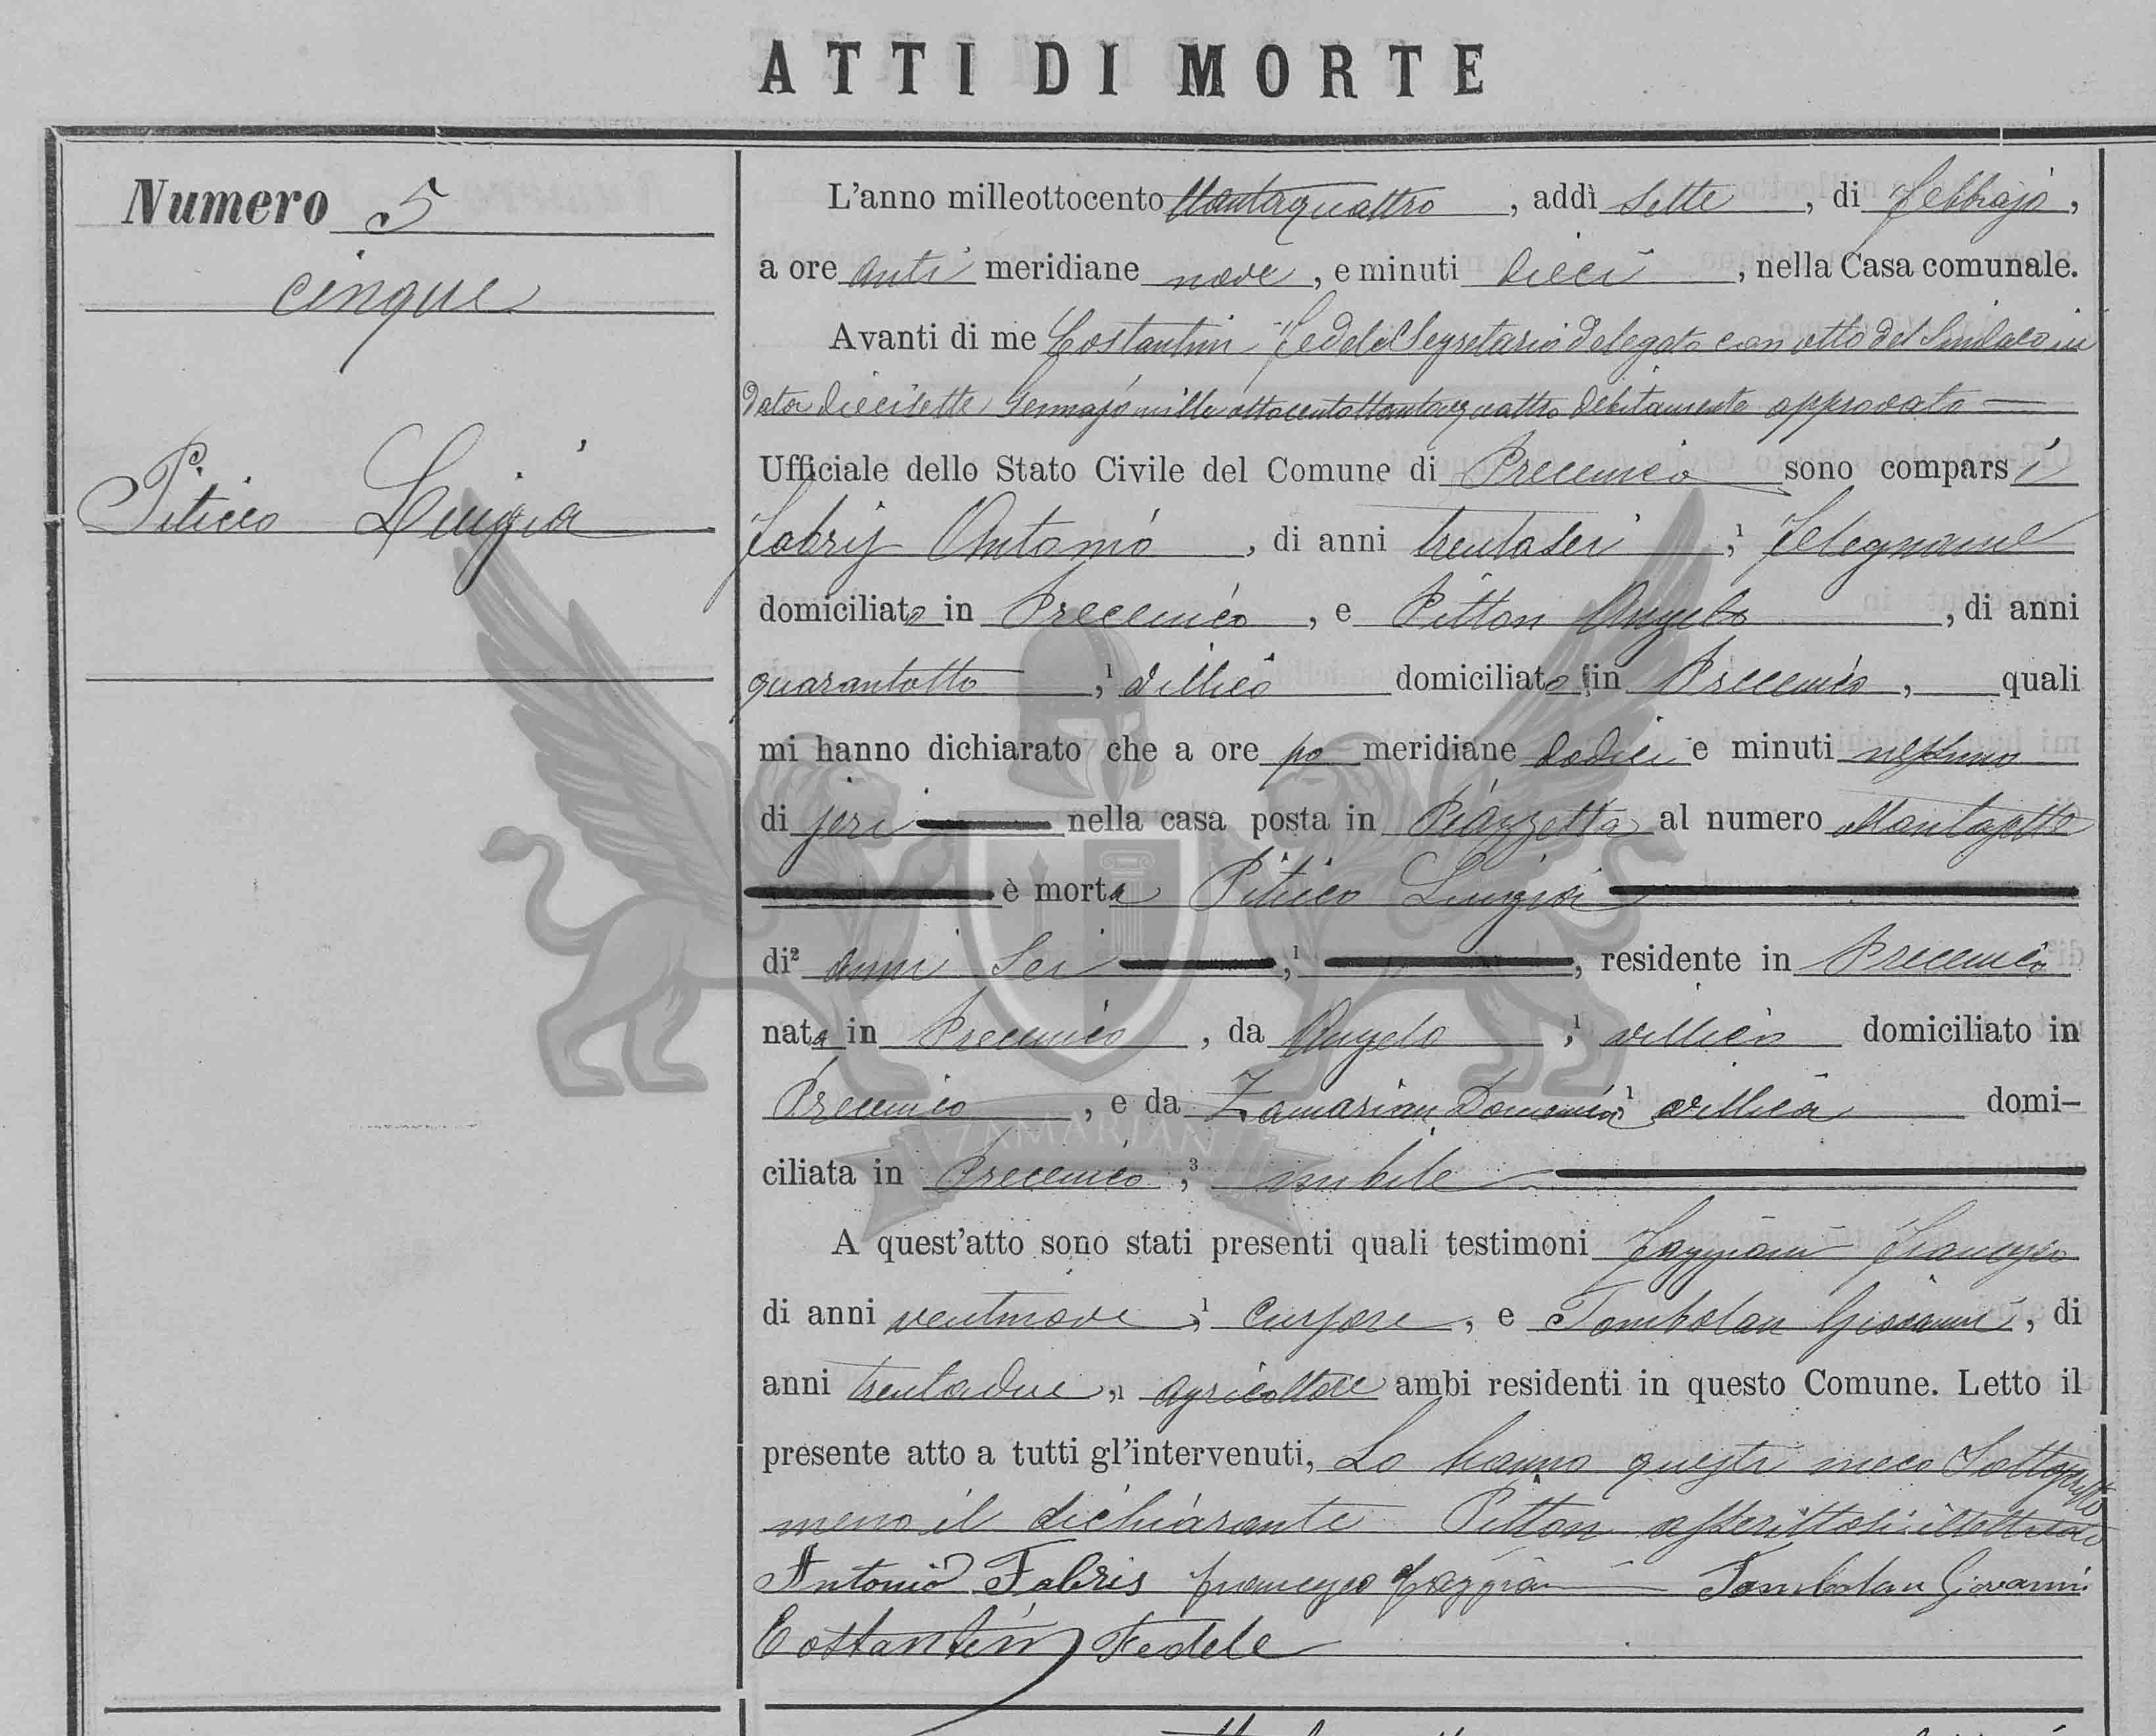 ATTI DI MORTE
Numero 5
cinque
Piticco Luigia
L'anno milleottocento ottantaquattro, addì sette, di Febbrajo,
a ore anti meridiane nove, e minuti dieci, nella Casa comunale.
Avanti di me Costantini Fedele Segretario delegato con atto del Sindaco in
data diecisette Gennajo mille ottocentottantaquattro debitamente approvato
Ufficiale dello Stato Civile del Comune di Precenico sono comparsi
Fabrij Antonio, di anni trentasei,¹ Felegname
domiciliato in Precenico, e Pitton Angelo, di anni
quarantotto,¹ villico domiciliato in Precenico, quali
mi hanno dichiarato che a ore po meridiane dodici e minuti nessuno
di jeri nella casa posta in Piazzetta al numero
è morta Piticco Luigia
di² anni sei,¹ , residente in Precenico
nata in Precenico, da Angelo,¹ villico domiciliato in
Precenico, e da Zamarian Domenica¹ villica domi-
ciliata in Precenico,³ nubile
A quest'atto sono stati presenti quali testimoni Faggiani Francesco
di anni ventinove,¹ Cursore, e Tombolan Giovanni, di
anni trentadue,¹ agricoltore ambi residenti in questo Comune. Letto il
presente atto a tutti gl'intervenuti, Lo hanno questi meco Sottoscritto
meno il dichiarante Pitton asserittosi illetterato
Antonio Fabris Francesco Faggian Tombolan Giovanni
Costantini Fedele
ZAMARIAN